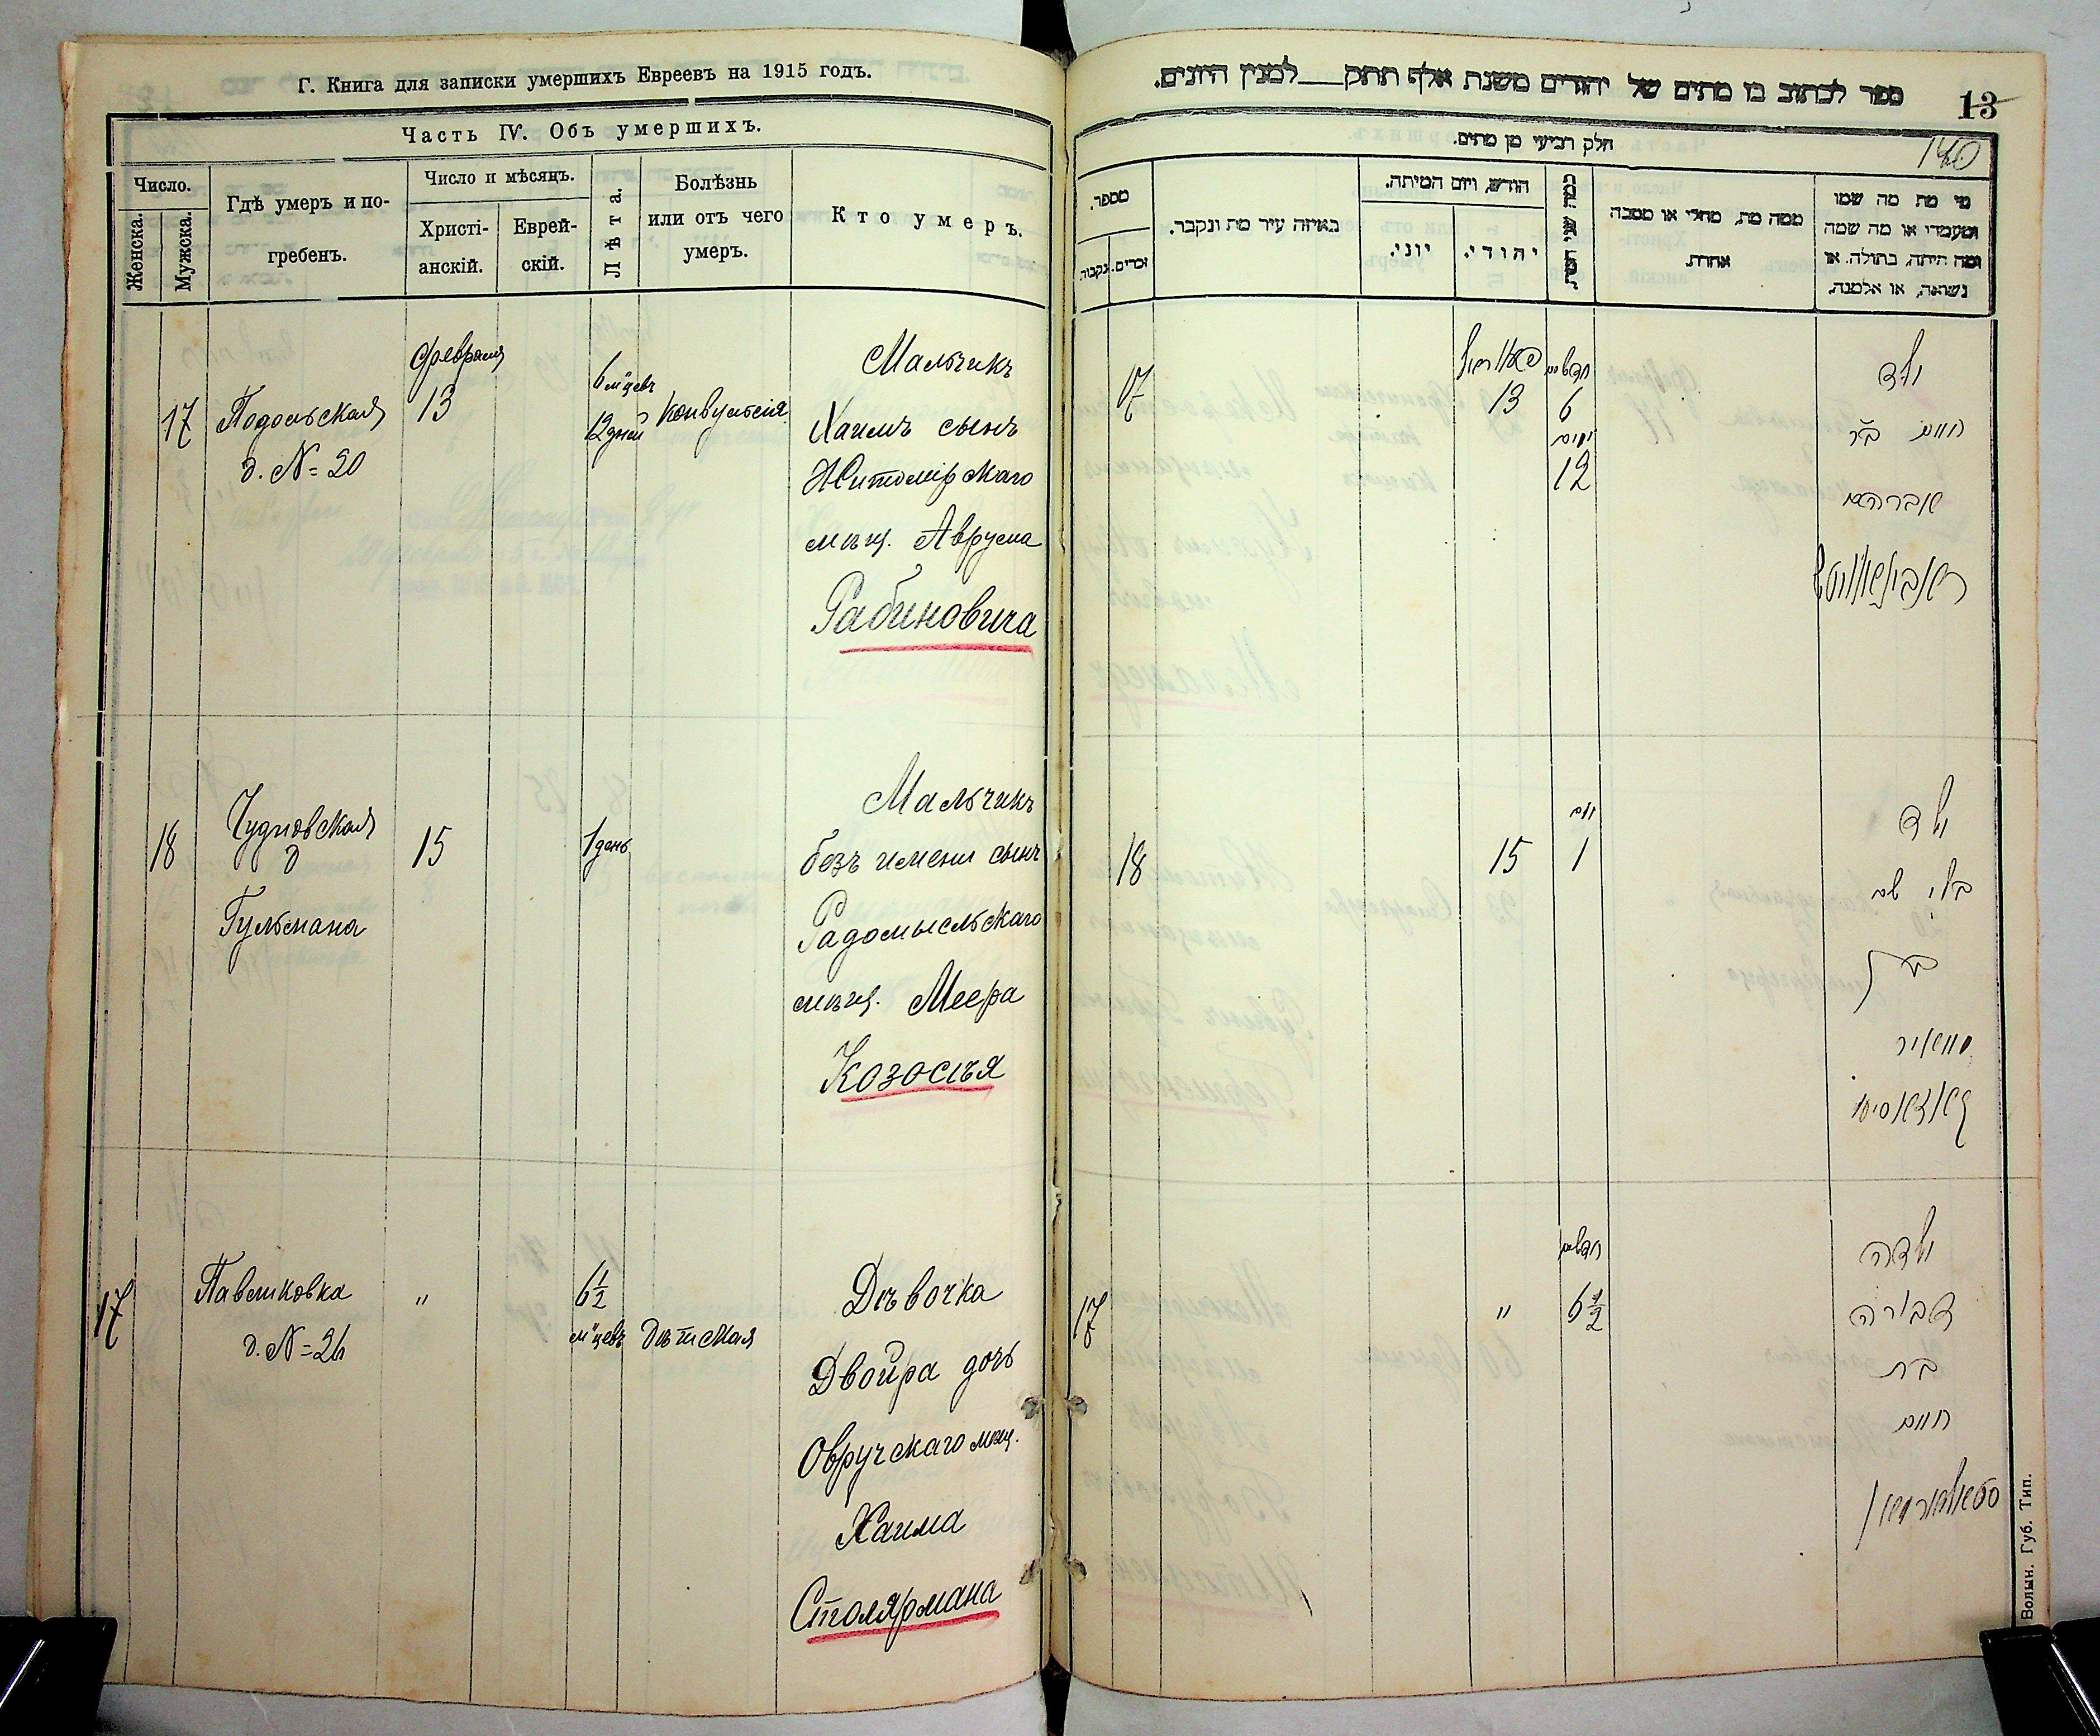 Г. Книга для записки умершихъ Евреевъ на 1915 годъ.
Часть IV. Объ умершихъ.
Число.
Женска.
Мужска.
Гдѣ умеръ и по-
гребенъ.
Число и мѣсяцъ.
Христі-
анскій.
Еврей-
скій.
Лѣта.
Болѣзнь
или отъ чего
умеръ.
Кто умеръ.
17
Подольская
д. № 20
Февраля
13
6 м-цевъ
12 дней
Конвульсія
Мальчикъ
Хаимъ сынъ
Житомірскаго
мѣщ. Аврума
Рабиновича
18
Чудновская
д
Гульмана
15
1 день
Мальчикъ
безъ имени сынъ
Радомысльскаго
мѣщ. Меера
17
Павликовка
д. №
"
6 1/2
м-цевъ
Дѣтская
Дѣвочка
Двойра дочь
Овручскаго мѣщ.
Хаима
Столярмана
ספר לכתוב בו מתים של יהודים משנת אלף תתק למנין היונים.
13
140
חלק רביעי מן מתים.
מספר.
זכרים.
נקבות.
באיזה עיר מת ונקבר.
חודש, ויום המיתה.
יוני.
יהודי.
כמה שני המת.
ממה מת, מחלי או מסבה
אחרת.
מי מת מה שמו
ומעמדו או מה שמה
ומה היתה, בתולה, או
נשואה, או אלמנה.
17
פעווראל
13
חדשים
6
ימים
12
ילד
חיים ב"ר
אברהם
ראבינאוויטש
18
15
יום
1
ילד
בלי שם
בן
מאיר
17
"
חדשים
6 1/2
ילדה
דבורה
בת
חיים
סטאליארמאן
Волын. Губ. Тип.